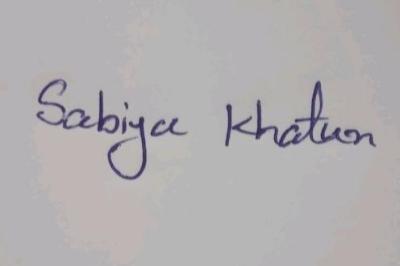 Sabiya Khatun